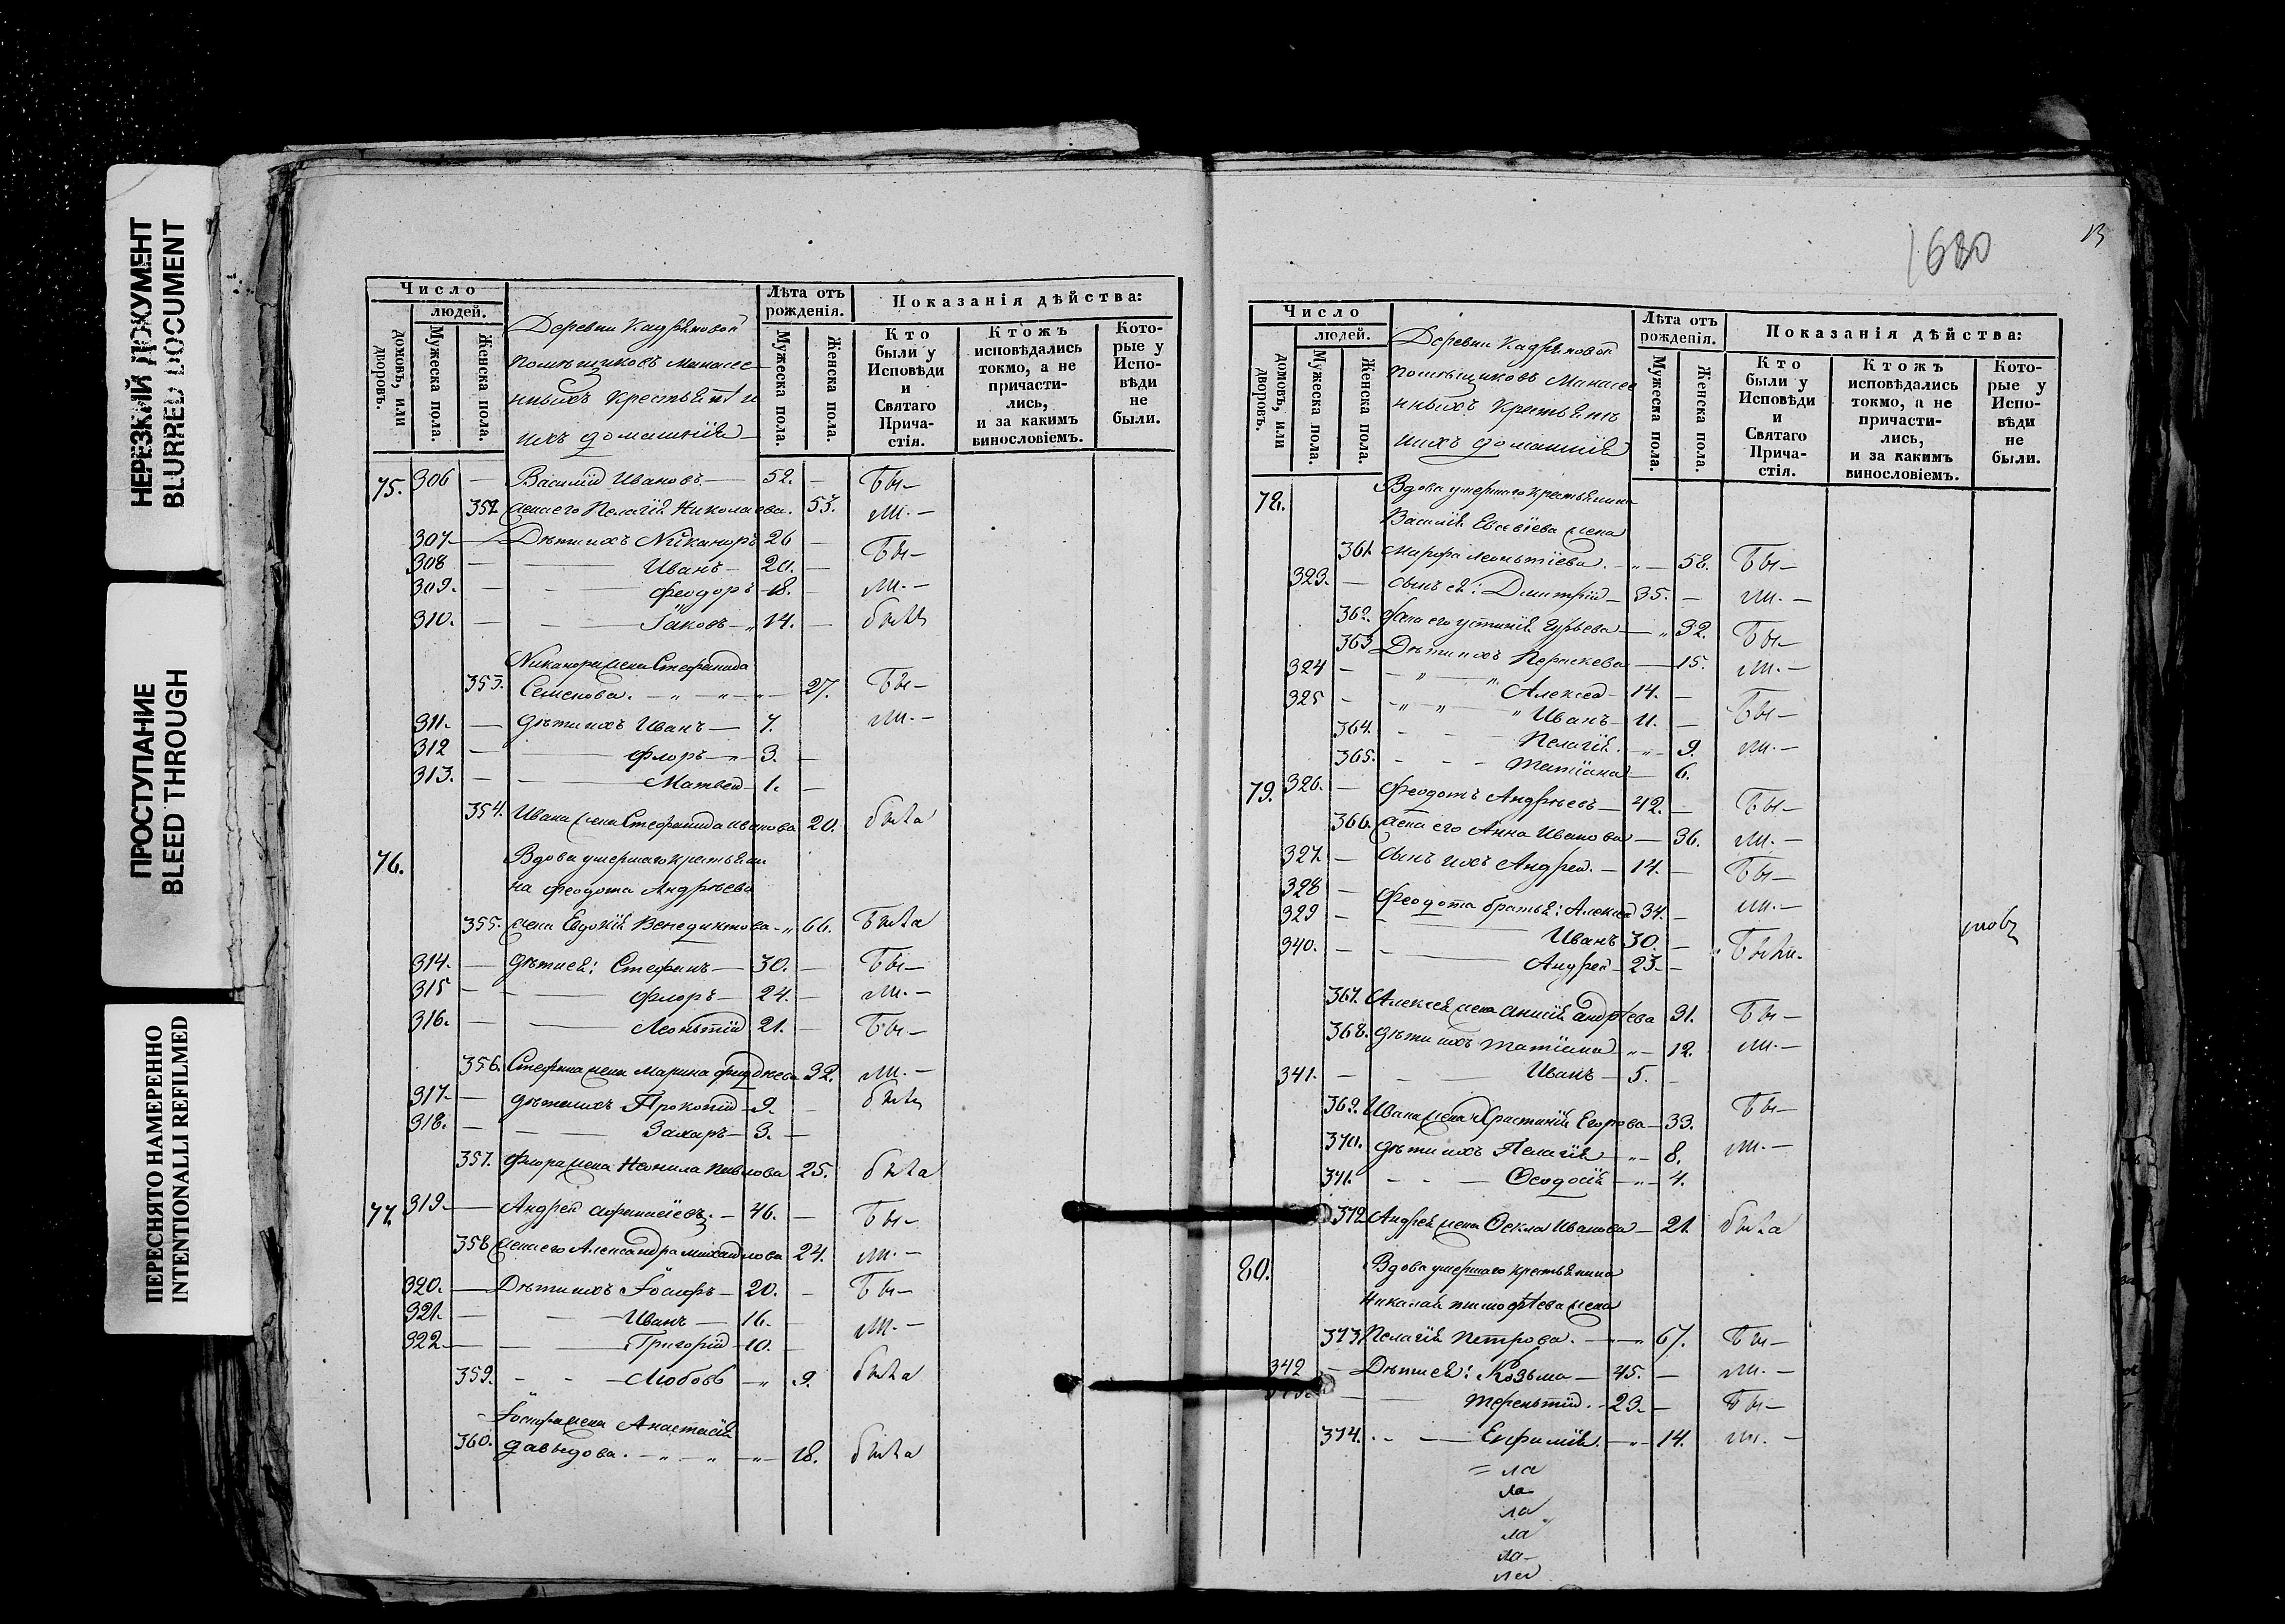 НЕРЕЗКИЙ ДОКУМЕНТ
BLURRED DOCUMENT
ПРОСТУПАНИЕ
BLEED THROUGH
ПЕРЕСНЯТО НАМЕРЕННО
INTENTIONALLI REFILMED
Число
людей.
домовъ, или дворовъ.
Мужеска пола.
Женска пола.
Деревни Кадряковой
помѣщиковъ Манасеи
нныхъ крестьянъ и
ихъ домашнія
Лѣта отъ рожденія.
Мужеска пола.
Женска пола.
Показанія дѣйства:
Кто были у Исповѣди и Святаго Прича-стія.
Ктожъ исповѣдались токмо, а не причасти-лись, и за какимъ винословіемъ.
Кото-рые у Испо-вѣди не были.
75. 306 — Василій Ивановъ — 52. — Бы—
352 жена его Пелагія Николаева. 53. ли. —
307 — Дѣти ихъ Никаноръ 26 —
308 — Иванъ — 20. — Бы—
309. — Феодоръ 18. — ли. —
310. — Іаковъ — 14. — былъ
Никанора жена Стефанида
353. Семенова. — „ — „ — 27. Бы—
311. — дѣти ихъ Иванъ — 7. ли. —
312 — Флоръ — „ 3. —
313. — Матвей — 1. —
354. Ивана жена Стефанида иванова 20. была
76. Вдова умершаго крестьяни
на Феодота Андрѣева
355. жена Евдокія Венедиктова — „ 66. Была
314. — дѣти ея: Стефанъ — 30. — Бы—
315 — Флоръ — 24. — ли. —
316. — Леонтій 21. — Бы—
356. Стефана жена Марина 32. ли. —
317. — дѣти ихъ Прокопій — 9. — былъ
318. — Захаръ — 3. —
357. Флора жена Неонила павлова 25. была
77. 319. — Андрей — 46. — Бы—
358 жена его Александра михайлова 24. ли. —
320. — Дѣти ихъ Іосифъ — 20. — Бы—
321. — Иванъ — 16. — ли. —
322 — Григорій — 10. —
359. — Любовь — „ 9. была
Іосифа жена Анастасія
360. давыдова. — „ — „ — „ — 18. была
1680
13
Число
людей.
домовъ, или дворовъ.
Мужеска пола.
Женска пола.
Деревни Кадряковой
помѣщиковъ Манасеи
нныхъ крестьянъ
ихъ домашнія
Лѣта отъ рожденія.
Мужеска пола.
Женска пола.
Показанія дѣйства:
Кто были у Исповѣди и Святаго Прича-стія.
Ктожъ исповѣдались токмо, а не причасти-лись, и за какимъ винословіемъ.
Кото-рые у Испо-вѣди не были.
78. Вдова умершаго крестьянина
Василія Евсевіева жена
361. марфа леонтіева. — „ — 58. Бы—
323. — сынъ ея: Димитрій — 35. — ли. —
362. жена его устинія — „ 32. Бы—
363 Дѣти ихъ Параскева — 15. ли. —
324 — „ — „ Алексей — 14. —
325 — „ „ „ Иванъ — 11. — Бы—
364. — Пелагія. — „ — 9. ли. —
365. — Татіана — 6.
79. 326. — Феодотъ Андрѣевъ — 42. — Бы—
366. жена его Анна Иванова — 36. ли. —
327. — сынъ ихъ Андрей. — 14. — Бы—
328 — Феодота братья: Алексей 34. — ли. —
329 — Иванъ 30. —
340. — Андрей — 23. — Были.
367. Алексея жена андрѣева 31. Бы—
368. дѣти ихъ татіана „ — 12. ли. —
341. — Иванъ — 5. —
369. Ивана жена Христинія Егорова — 33. Бы—
370. дѣти ихъ Пелагія — „ — 8. ли. —
371. — Ѳеодосія — „ — 4.
372 Андрея жена Ѳекла Иванова — 21. была
80. Вдова умершаго крестьянина
Николая тимофѣева жена
373 Пелагія петрова. — „ — 67. Бы—
342 — Дѣти ея: Козьма — 45. — ли. —
— терентій. — 23. — Бы—
374. — Евфимія. — „ — 14. ли. —
= ла
ла
ла
ла
ла